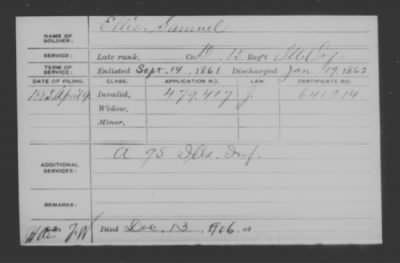 NAME OF SOLDIER: Ellis, Samuel
SERVICE: Late rank, Co. 15 Reg't
TERM OF SERVICE: Enlisted Sept. 14, 1861 Discharged Jan 19, 1862
DATE OF FILING. CLASS. APPLICATION NO. LAW. CERTIFICATE NO.
Invalid, 479,417 J.
Widow,
Minor,
ADDITIONAL SERVICES: A 95 Ills. Inf.
REMARKS:
Died Dec. 13, 1906, at